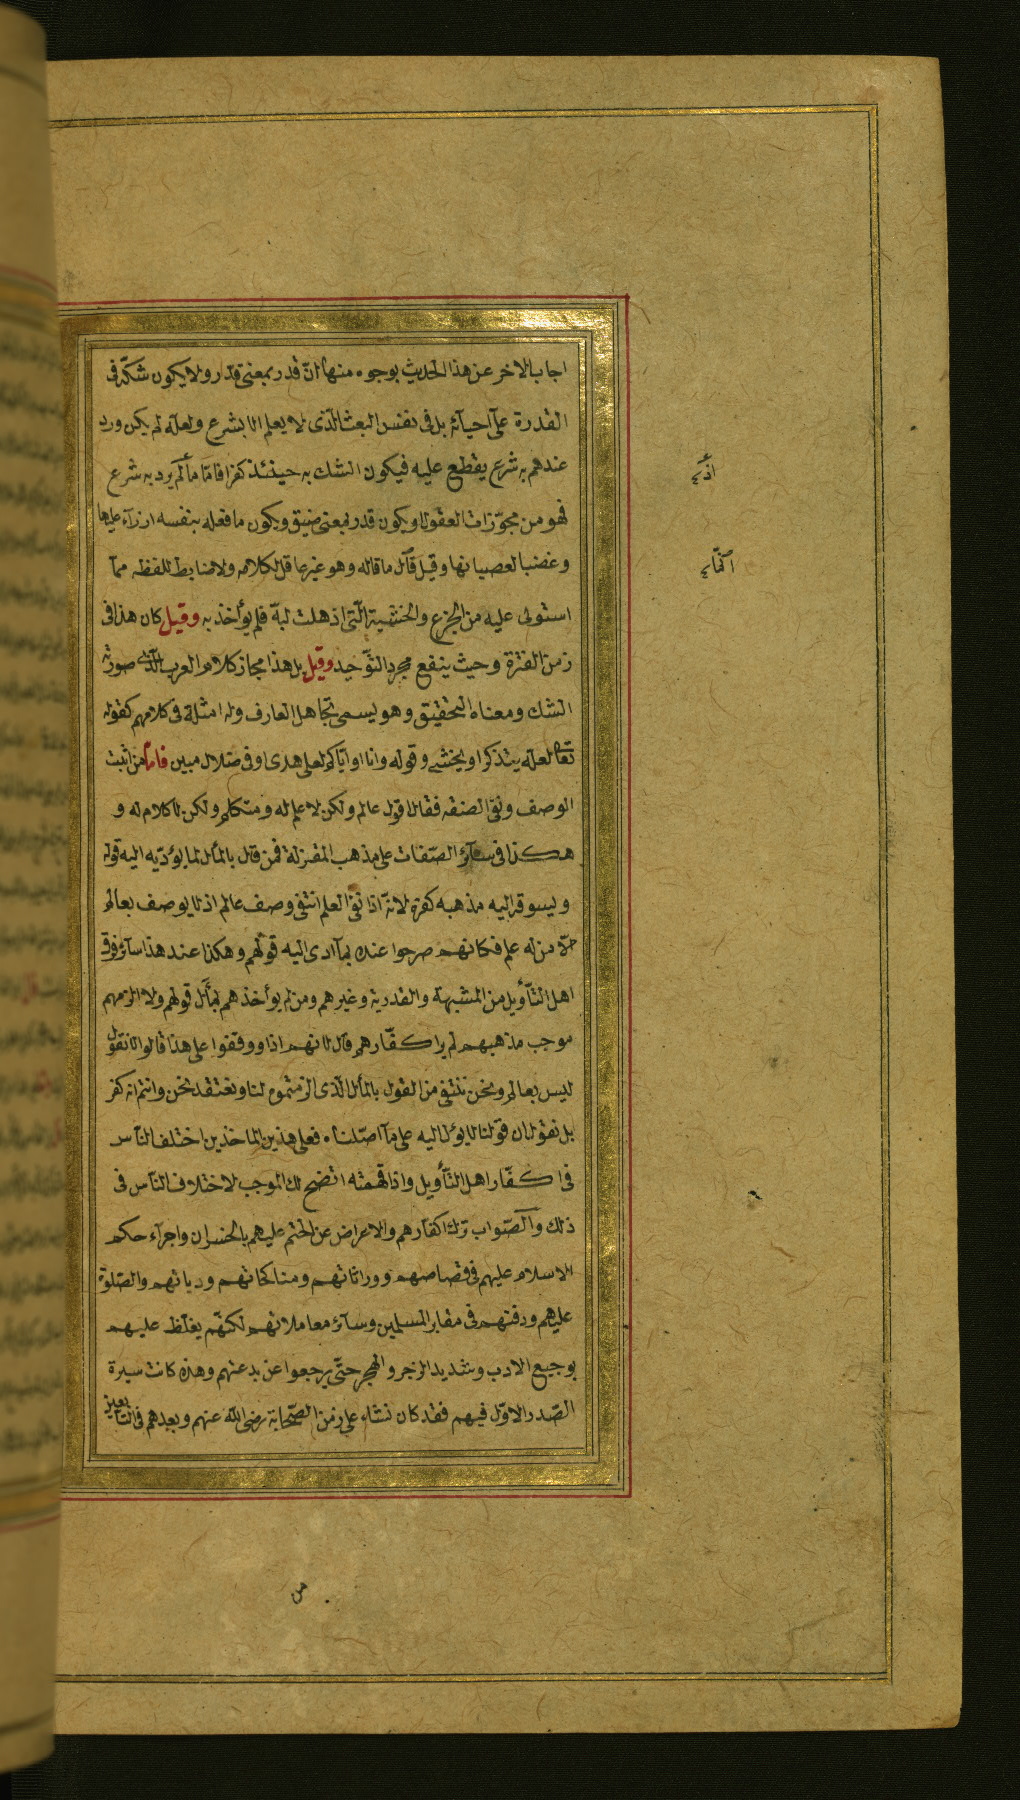 اجاب الاخر عن هذا الحديث بوجوه منها ان قدر بمعنى قدّر ولا يكون شكّه فى
القدرة على احيائه بل فى نفس البعث الّذى لا يعلم الا بشرع ولعلّه لم يكن ورد
عندهم به شرع يقطع عليه فيكون الشك به حينئذ كفرا فامّا ما لم يرد به شرع
فهو من مجوّزات العقول او يكون قدر بمعنى ضيق ويكون ما فعله بنفسه ازراء عليها
وغضبا لعصيانها وقيل قال ما قاله وهو غير عاقل لكلامه ولا ضابط للفظه ممّا
استولى عليه من الجزع والخشية الّتى اذهلت لبّه فلم يؤاخذ به وقيل كان هذا فى
زمن الفترة وحيث ينفع مجرد التوّحيد وقيل بل هذا مجاز كلام العرب الّذى صورته
الشك ومعناه التحقيق وهو يسمى تجاهل العارف وله امثلة فى كلامهم كقوله
تعالى لعلّه يتذكر او يخشى وقوله وانا او اياكم لعلى هدى او فى ضلال مبين فامّا من اثبت
الوصف ونفى الصفة فقال اقول عالم ولكن لا علم له ومتكلم ولكن لا كلام له و
هكذا فى سائر الصّفات على مذهب المعتزلة فمن قال بالمأل لما يؤدّيه اليه قوله
ويسوقه اليه مذهبه كفره لانّه اذا نفى العلم انتفى وصف عالم اذ لا يوصف بعالم
الّا من له علم فكانهم صرحوا عنده بما ادى اليه قولهم وهكذا عند هذا سائر فرق
اهل التّأويل من المشبهة والقدرية وغيرهم ومن لم يؤاخذهم بمأل قولهم ولا الزمهم
موجب مذهبهم لم ير اكفّارهم قال لانهم اذا ووقفوا على هذا قالوا لا نقول
ليس بعالم ونحن ننتفى من القول بالمأل الّذى الزمتموه لنا ونعتقد نحن وانتم انه كفر
بل نقول ان قولنا لا يؤل اليه على ما اصّلناه فعلى هذين الماخذين اختلف النّاس
فى اكفّار اهل التّأويل واذا فهمته اتضح لك الموجب لاختلاف النّاس فى
ذلك والصّواب ترك اكفارهم والاعراض عن الختم عليهم بالخسران واجرآء حكم
الاسلام عليهم فى قصاصهم ووراثاتهم ومناكحاتهم ودياتهم والصّلوة
عليهم ودفنهم فى مقابر المسلمين وسآئر معاملاتهم لكنّهم يغلّظ عليهم
بوجيع الادب وشديد الزجر والهجر حتّى يرجعوا عن بدعتهم وهذه كانت سيرة
الصّدر الاوّل فيهم فقد كان نشاء على زمن الصّحابة رضى اللّه عنهم وبعدهم فى التّابعين
من